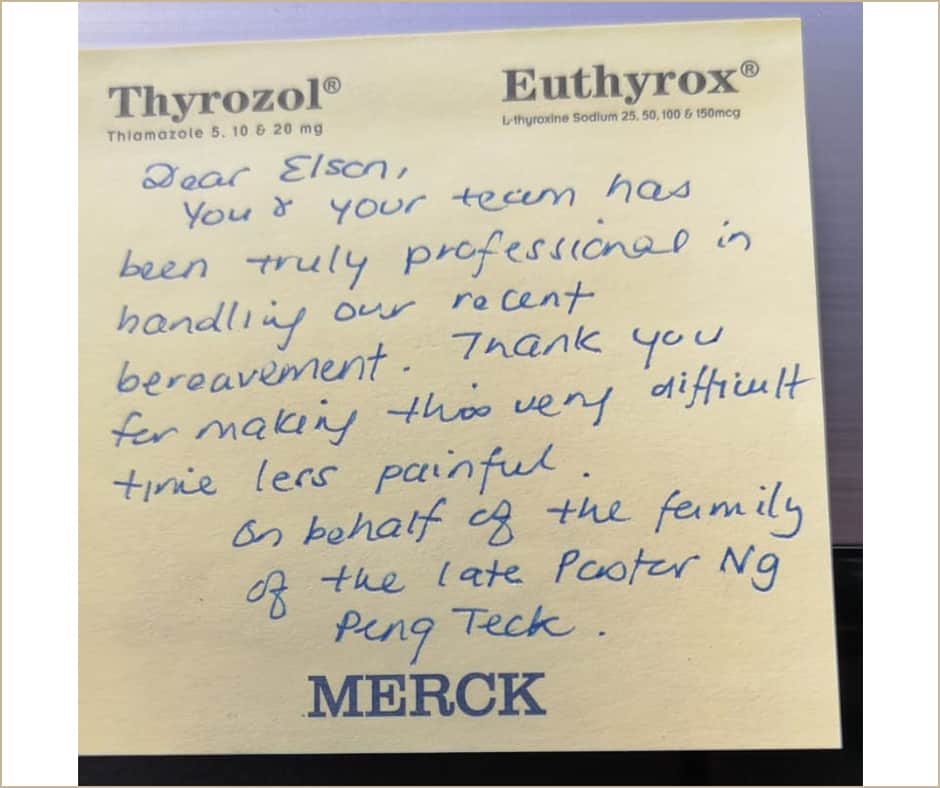 Thyrozol® Euthyrox®
Thiamazole 5, 10 & 20 mg L-thyroxine Sodium 25, 50, 100 & 150mcg
Dear Elson,
You & your team has
been truly professional in
handling our recent
bereavement. Thank you
for making this very difficult
time less painful.
On behalf of the family
of the late Pastor Ng
Peng Teck.
MERCK